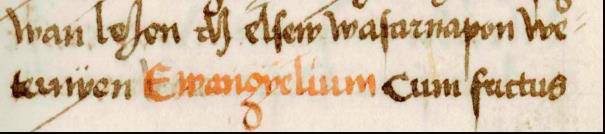 wan lezen az elsew wasarnapon we=
ternÿen Ewangÿelium Cum factus